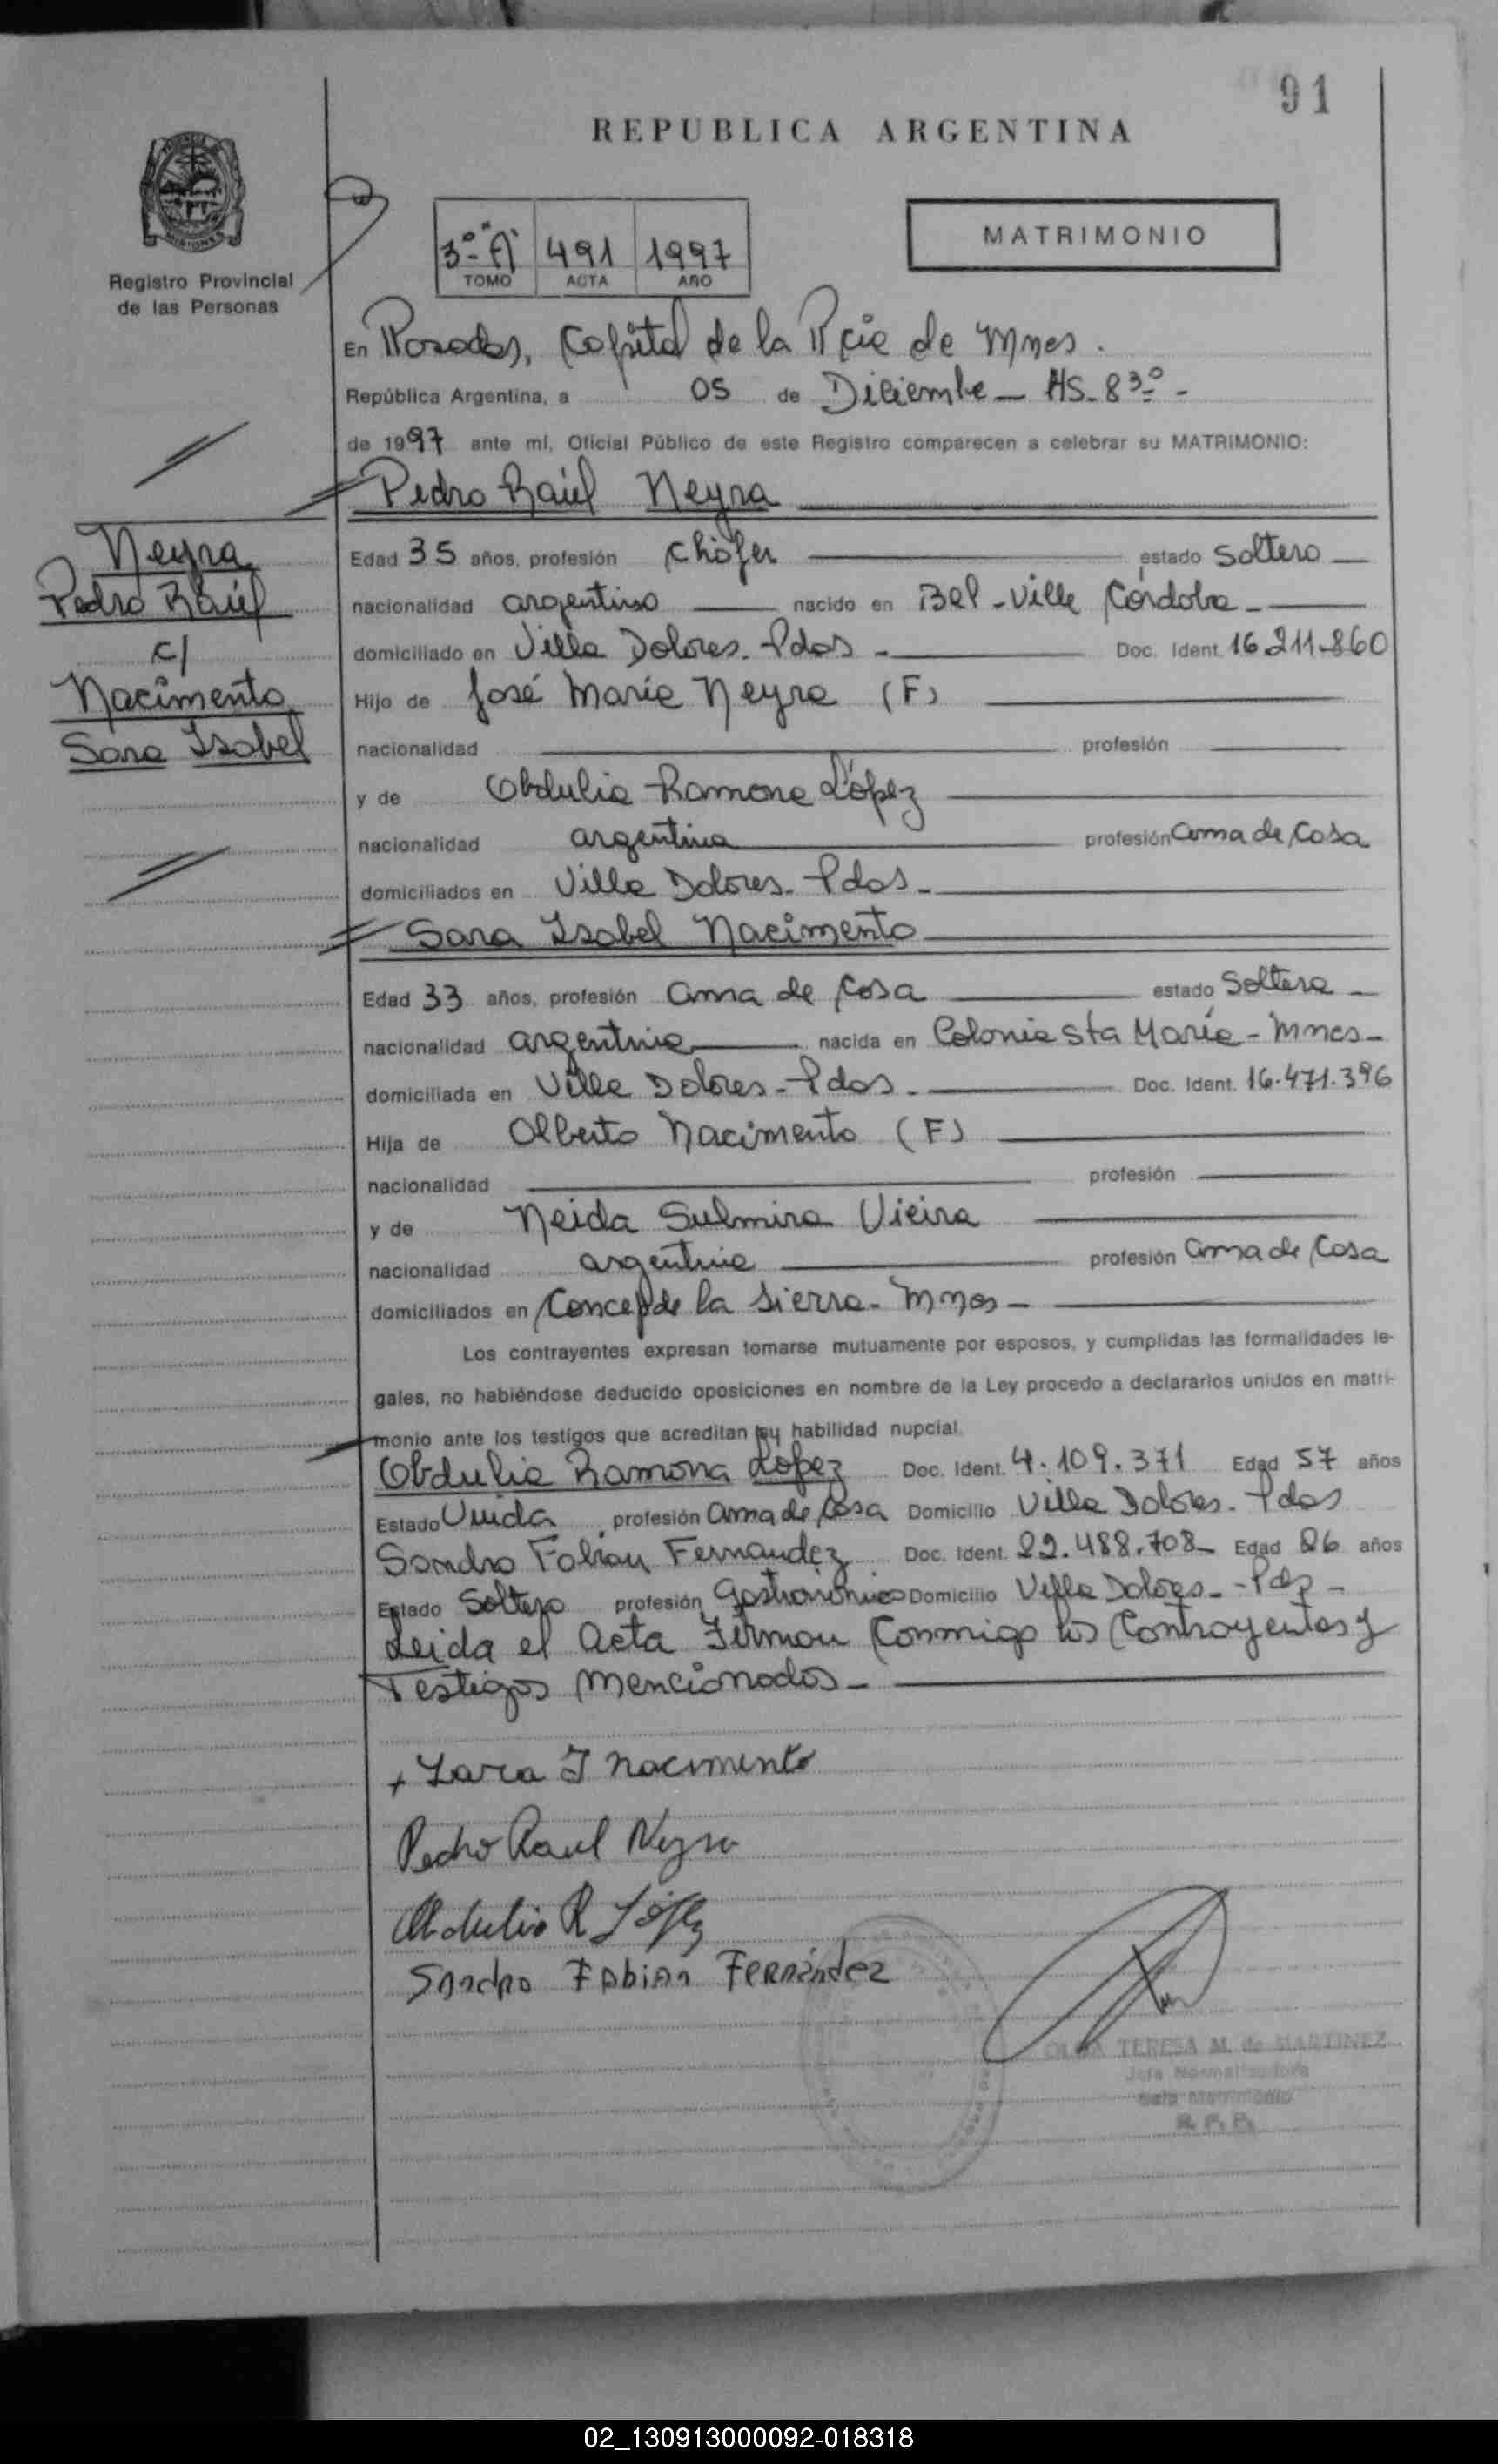 91
REPUBLICA ARGENTINA
MISIONES
Registro Provincial
de las Personas
3º "A" 491 1997
TOMO ACTA AÑO
MATRIMONIO
En Posadas, Capital de la Pcia de Mnes.
República Argentina, a 05 de Diciembre - HS. 8 30 -
de 1997 ante mí, Oficial Público de este Registro comparecen a celebrar su MATRIMONIO:
Pedro Raúl Neyra
Neyra
Pedro Raúl
c/
Nacimento
Sara Isabel
Edad 35 años, profesión Chófer estado Soltero
nacionalidad argentino nacido en Bel-Ville Córdoba
domiciliado en Villa Dolores. Pdas - Doc. Ident. 16.211.860
Hijo de José María Neyra (F)
nacionalidad profesión
y de Obdulia Ramona López
nacionalidad argentina profesión ama de Casa
domiciliados en Villa Dolores. Pdas -
Sara Isabel Nacimento
Edad 33 años, profesión ama de Casa estado Soltera
nacionalidad argentina nacida en Colonia Sta María - Mnes -
domiciliada en Villa Dolores - Pdas. Doc. Ident. 16.471.396
Hija de Alberto Nacimento (F)
nacionalidad profesión
y de Neida Sulmira Vieira
nacionalidad argentina profesión ama de Casa
domiciliados en Concep de la Sierra - Mnes -
Los contrayentes expresan tomarse mutuamente por esposos, y cumplidas las formalidades le-
gales, no habiéndose deducido oposiciones en nombre de la Ley procedo a declararlos unidos en matri-
monio ante los testigos que acreditan su habilidad nupcial.
Obdulia Ramona López Doc. Ident. 4.109.371 Edad 57 años
Estado Viuda profesión ama de Casa Domicilio Villa Dolores. Pdas
Sandro Fabian Fernandez Doc. Ident. 22.488.708 Edad 26 años
Estado Soltero profesión Gastronómico Domicilio Villa Dolores - Pdas -
Leida el Acta Firman Conmigo los Contrayentes y
Testigos mencionados -
+ Sara I Nacimento
Pedro Raul Neyra
Obdulia R López
Sandro Fabian Fernández
OLGA TERESA M. de MARTINEZ
Jefa Normalizadora
Sala Matrimonio
R. P. P.
02_130913000092-018318